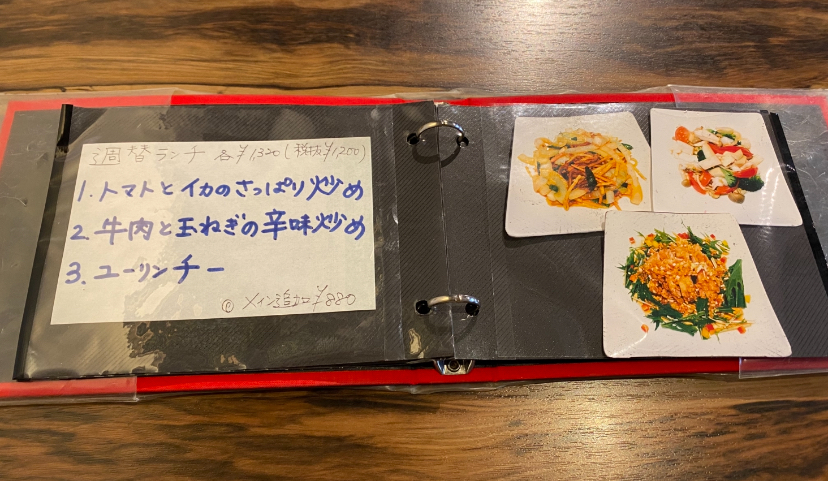 週替ランチ 各¥1,320(税抜¥1,200)
1. トマトとイカのさっぱり炒め
2. 牛肉と玉ねぎの辛味炒め
3. ユーリンチー
メイン追加¥880